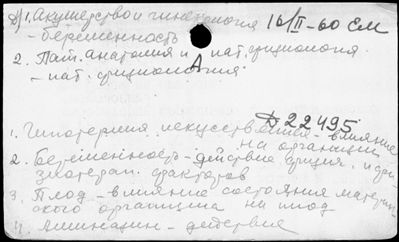 Д) 1. Акушерство и гинекология 16/II-60 ЕМ
- беременность
2. Пат. анатомия и пат. физиология
- пат. физиология
Д 22495
1. Гипотермия искусственная - влияние
на организм
2. Беременность - действие физич. и физиотерап. факторов
3. Плод - влияние состояния материнского организма на плод
4. Аминазин - действие